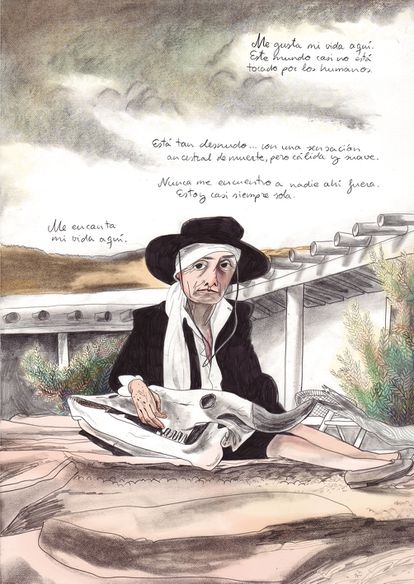 Me gusta mi vida aquí.
Este mundo casi no está
tocado por los humanos.
Está tan desnudo... con una sensación
ancestral de muerte, pero cálida y suave.
Nunca me encuentro a nadie ahí fuera.
Estoy casi siempre sola.
Me encanta
mi vida aquí.